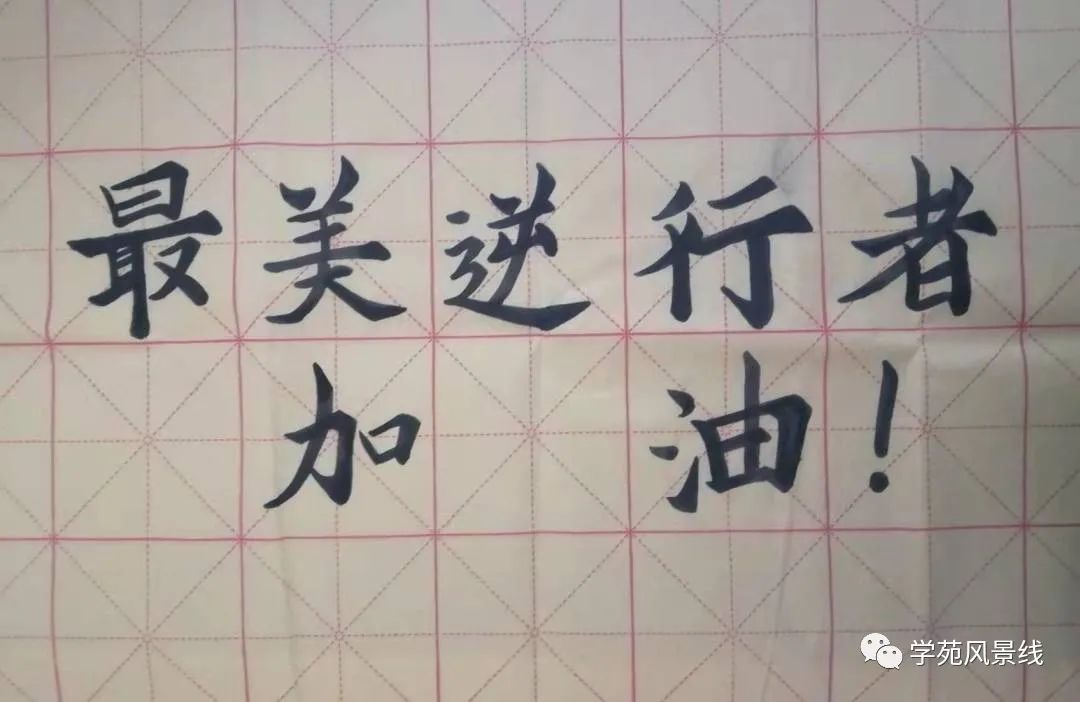 最美逆行者
加油！
学苑风景线